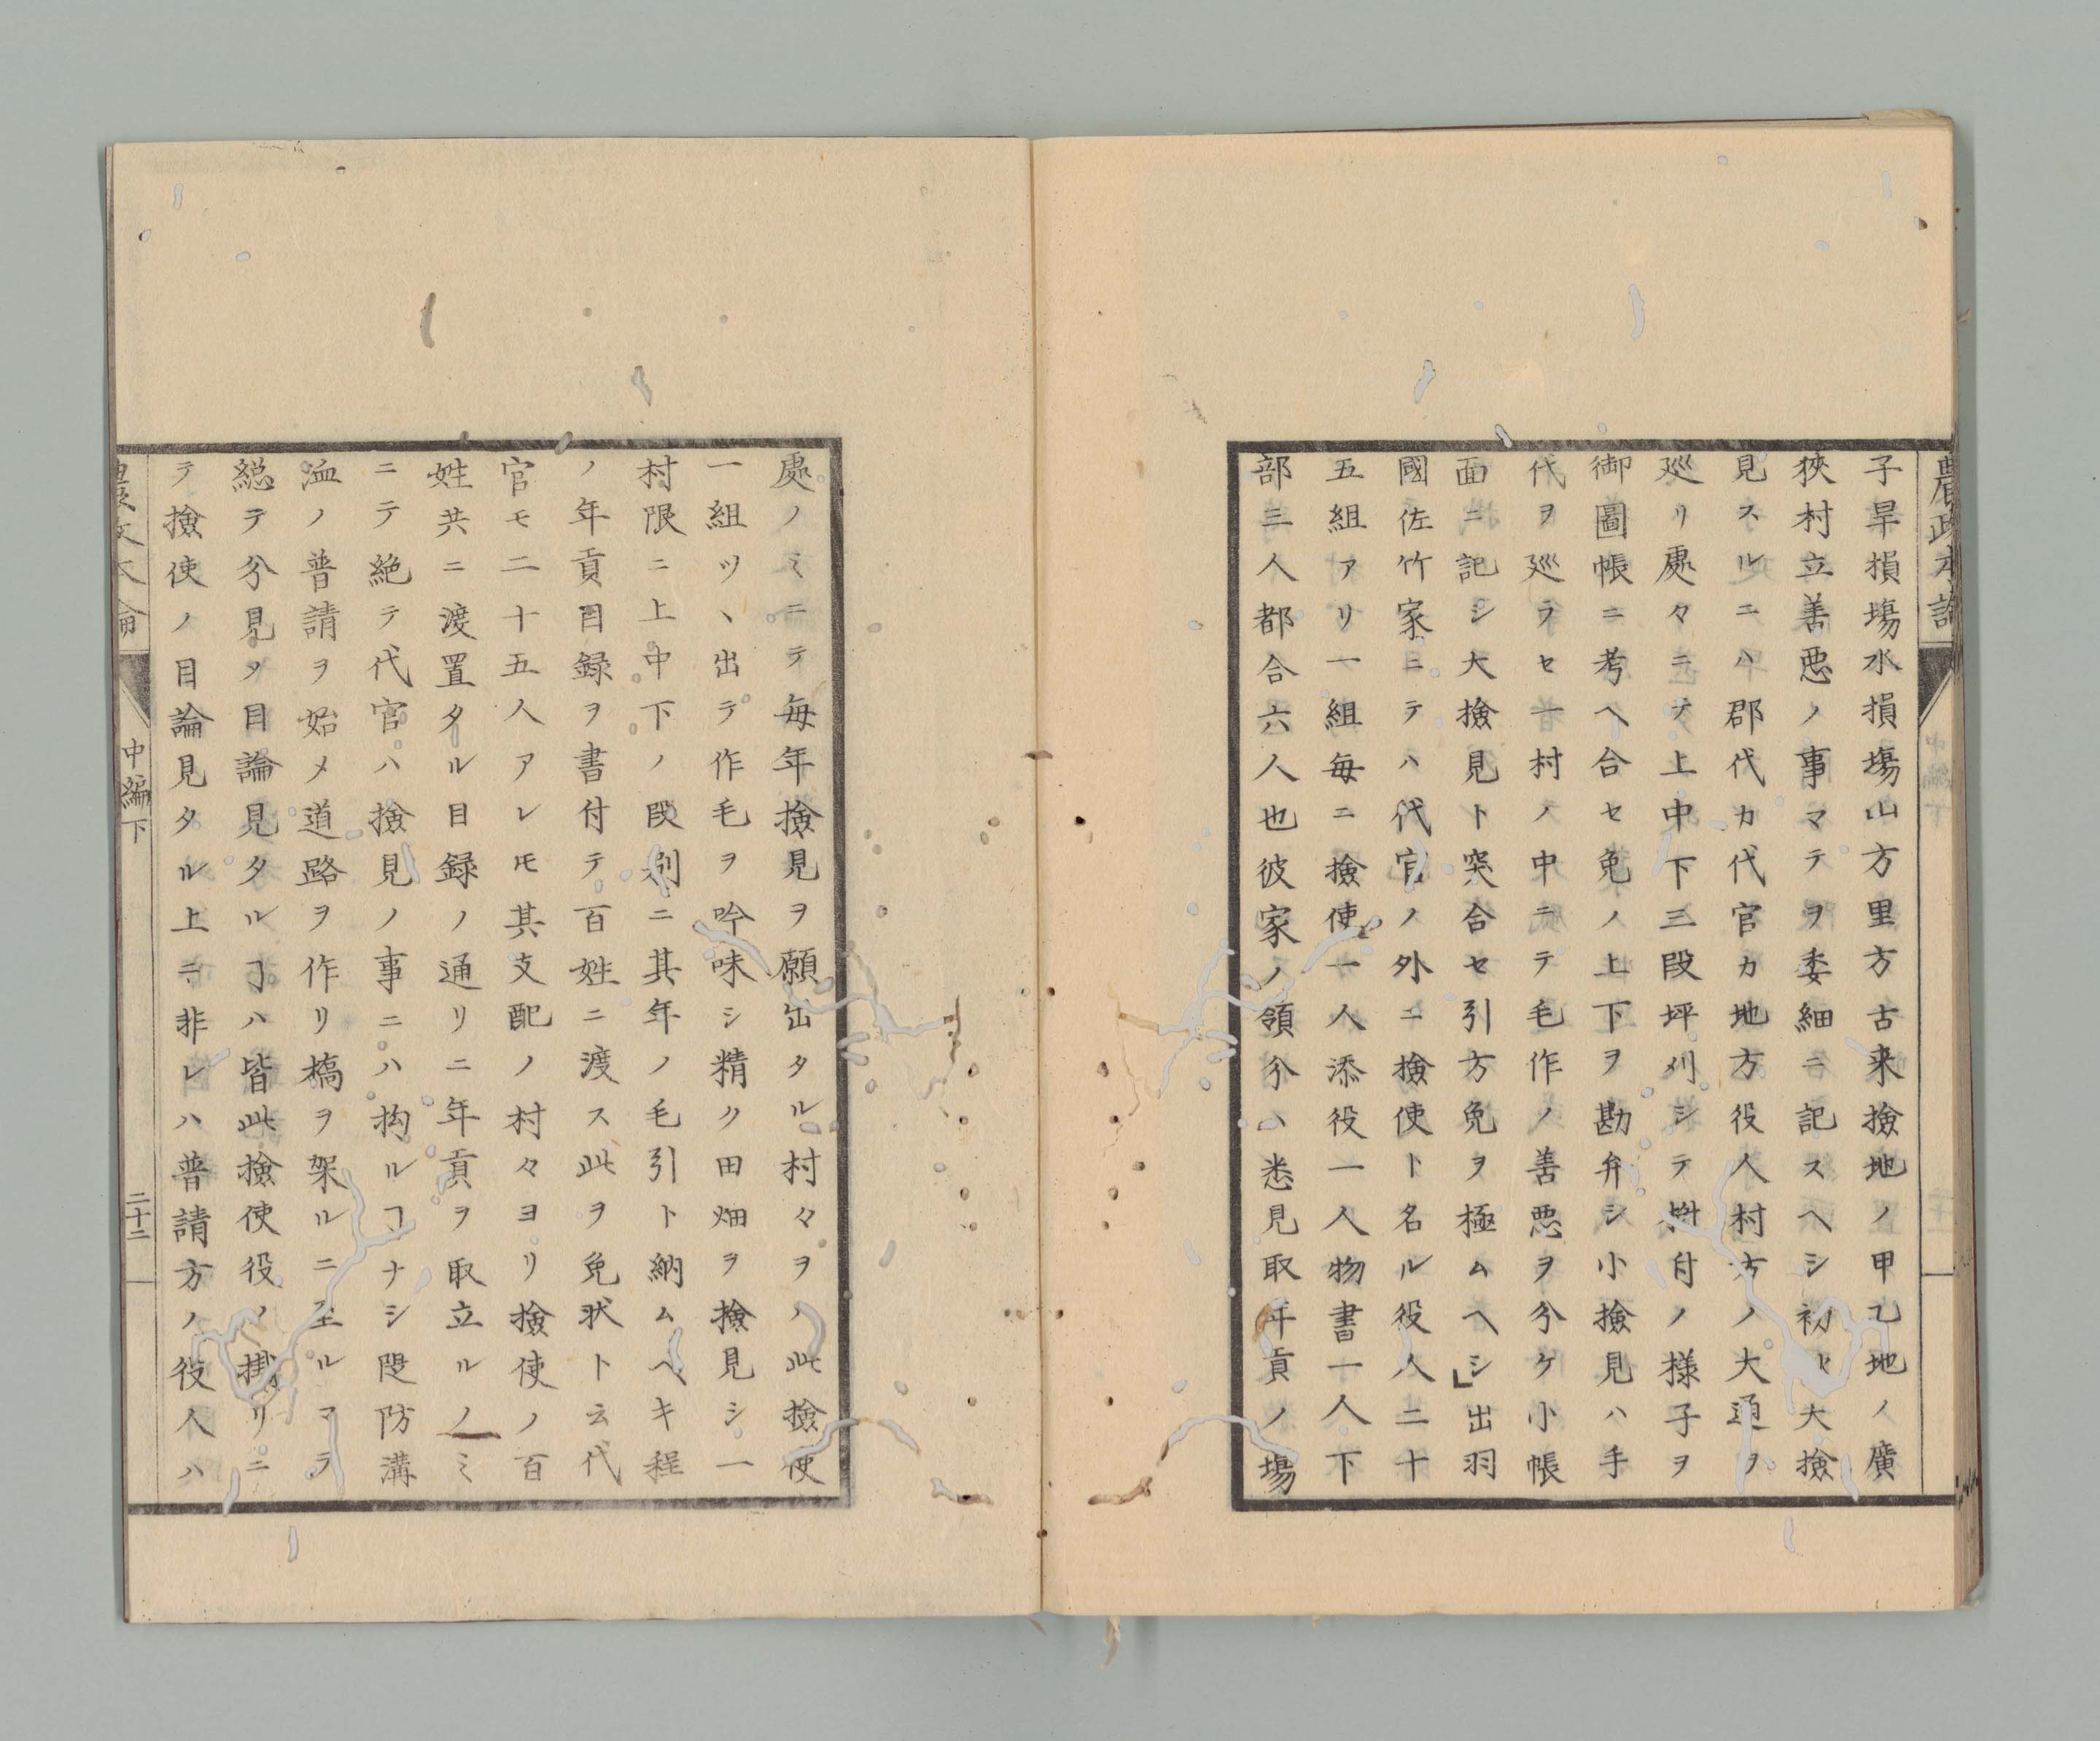 農政本論
子旱損場水損場山方里方古来撿地ノ甲乙地ノ廣
狹村立善悪ノ事マテヲ委細ニ記スヘシ初ヒ大撿
見スルニハ郡代カ代官カ地方役人村方ノ大通ヲ
廵リ處々ニテ上中下三段坪刈シテ樹付ノ様子ヲ
御圖帳ニ考ヘ合セ免ノ上下ヲ勘弁シ小撿見ハ手
代ヲ廵ラセ一村ノ中ニテ毛作ノ善悪ヲ分ケ小帳
面ニ記シ大撿見ト突合セ引方免ヲ極ムヘシ」出羽
國佐竹家ニテハ代官ノ外ニ撿使ト名ル役人二十
五組アリ一組毎ニ撿使一人添役一人物書一人下
部三人都合六人也彼家ノ領分ハ悉見取年貢ノ場
處ノミニテ毎年撿見ヲ願出タル村々ヲハ此撿使
一組ツヽ出テ作毛ヲ吟味シ精ク田畑ヲ撿見シ一
村限ニ上中下ノ段別ニ其年ノ毛引ト納ムヘキ程
ノ年貢目録ヲ書付テ百姓ニ渡ス此ヲ免状ト云代
官モ二十五人アレ𪜈其支配ノ村々ヨリ撿使ノ百
姓共ニ渡置タル目録ノ通リニ年貢ヲ取立ルノミ
ニテ絶テ代官ハ撿見ノ事ニハ拘ルヿナシ堤防溝
洫ノ普請ヲ始メ道路ヲ作リ橋ヲ架ルニ至ルマテ
総テ分見ヲ目論見タルヿハ皆此撿使役ノ掛リニ
テ撿使ノ目論見タル上ニ非レハ普請方ノ役人ハ
中編下
二十二